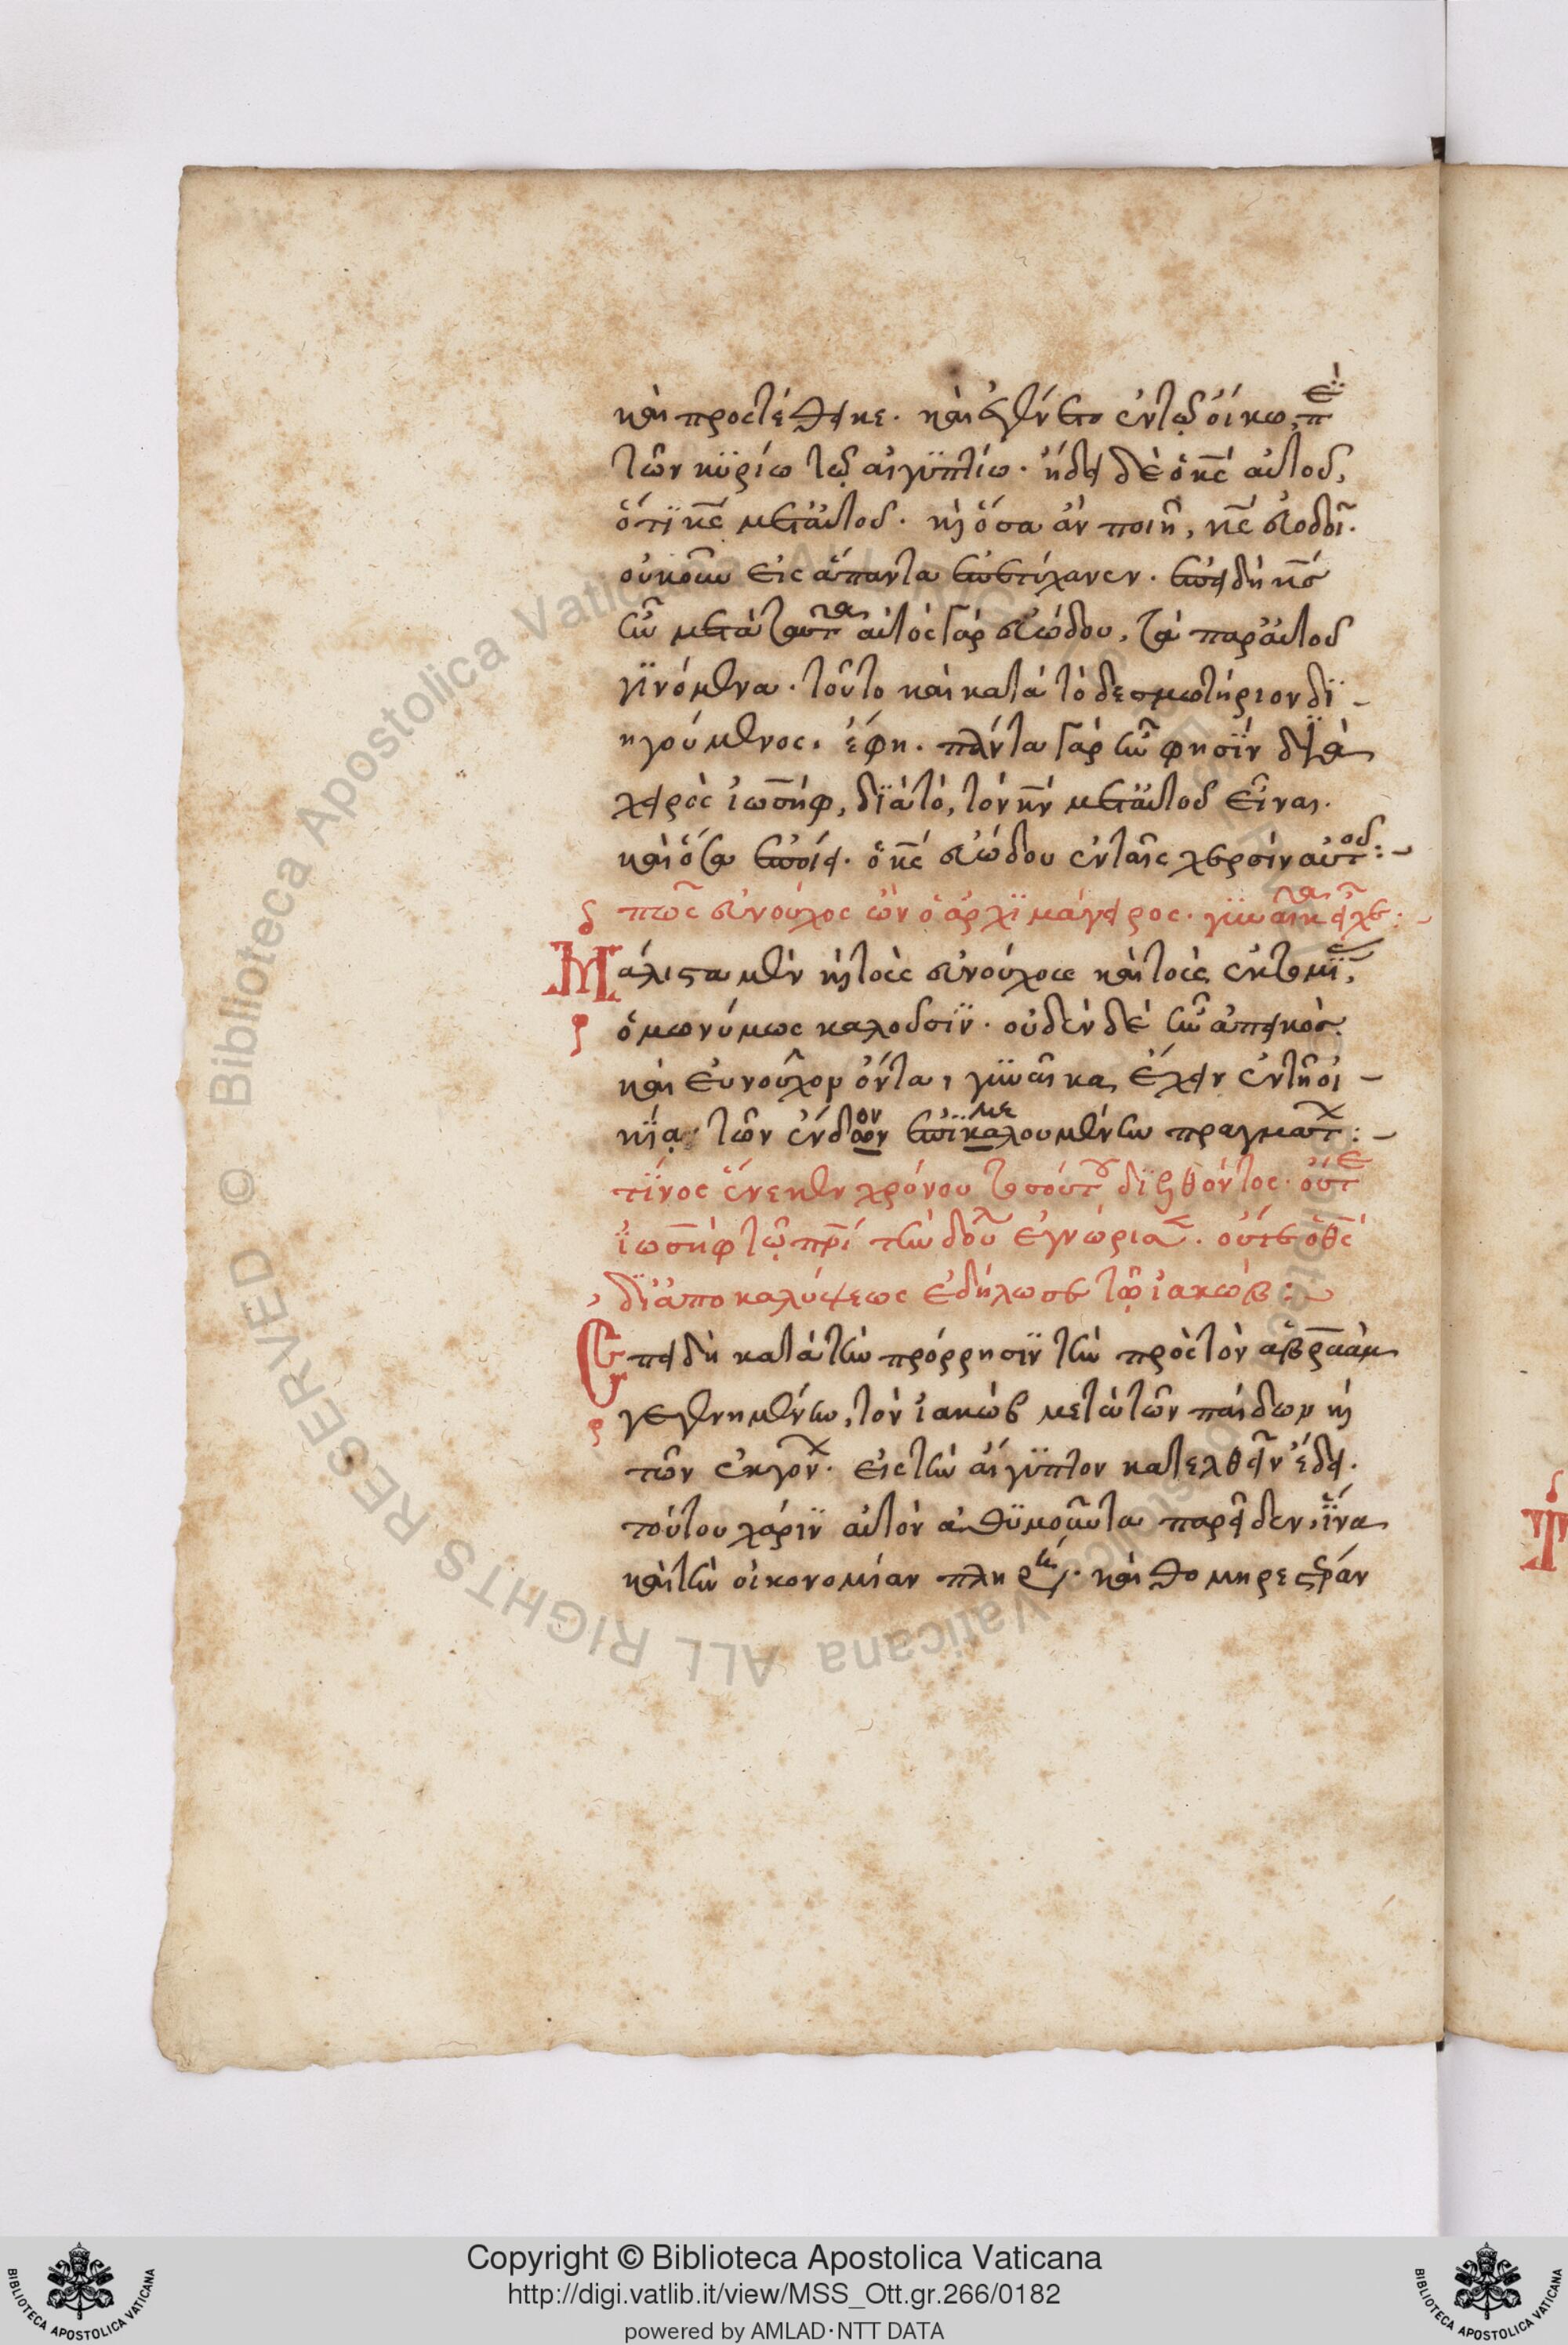 καὶ προστέθεικε. καὶ ἐγένετο ἐν τῷ οἴκῳ, ἐπὶ
τῶν κυρίω τῷ αἰγυπτίω. ἤδει δὲ ὁ κς̅ αὐτοῦ,
ὅτι κς̅ μετ' αὐτοῦ. κὶ ὅσα ἂν ποιῇ, κς̅ εὐοδοῖ.
οὐκοῦν εἰς ἅπαντα ἐπετύχανεν. ἐπειδὴ κς̅
ἦν μετὰ ταῦτα αὐτὸς γὰρ εὐώδου, τὰ παρ' αὐτοῦ
γινόμενα. τοῦτο καὶ κατὰ τὸ δεσμωτήριον δι-
ηγούμενος, ἔφη. πάντα γὰρ ἦν φησὶν διὰ
χειρὸς ἰωσὴφ, διὰ τὸ, τὸν κν̅ μετ' αὐτοῦ εἶναι.
καὶ ὅσα ἐποίει. ὁ κς̅ εὐώδου ἐν ταῖς χερσὶν αὐτοῦ:
πῶς εὐνούχος ὢν ὁ ἀρχιμάγειρος. γυναῖκα εἶχε:
Μάλιστα μὲν κὶ τοὺς εὐνούχους καὶ τοὺς ἐκτομί,
ὁμωνύμως καλοῦσιν. οὐδὲν δὲ ἦν ἀπεικὸς
καὶ εὐνοῦχον ὄντα, γυναῖκα ἔχειν ἐν τῇ οἰ-
κίᾳ τῶν ἔνδον ἐπιμελουμένην πραγμάτων:
τίνος ἕνεκεν χρόνου τοσούτου διελθόντος. οὔτε
ἰωσὴφ τῷ πρὶ̅ τὴν δου ἐγνώρισεν. οὔτε ὁ θς̅
δι' ἀποκαλύψεως ἐδήλωσε τῷ ἰακώβ:
Ἐπειδὴ κατὰ τὴν πρόρρησιν τὴν πρὸς τὸν ἀβραὰμ
γεγενημένην, τὸν ἰακὼβ μετὰ τῶν παίδων κὶ
τῶν ἐκγόνων. εἰς τὴν αἴγυπτον κατελθεῖν ἔδει.
τούτου χάριν αὐτὸν ἀθυμοῦντα παρεῖδεν, ἵνα
καὶ τὴν οἰκονομίαν πληρώσῃ. καὶ θο μηρεστραν
Copyright © Biblioteca Apostolica Vaticana
http://digi.vatlib.it/view/MSS_Ott.gr.266/0182
powered by AMLAD·NTT DATA